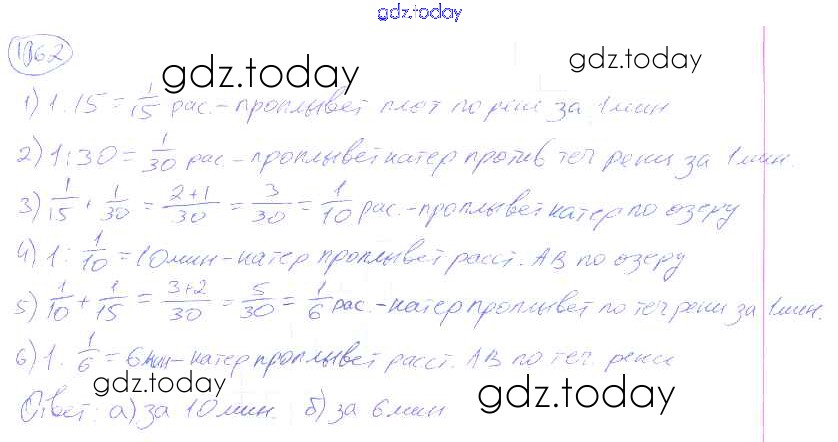 gdz.today
1062
gdz.today gdz.today
1) 1:15 = 1/15 рас. - проплывет плот по реке за 1 мин
2) 1:30 = 1/30 рас - проплывет катер против теч реки за 1 мин.
3) 1/15 + 1/30 = 2+1/30 = 3/30 = 1/10 рас. - проплывет катер по озеру
4) 1: 1/10 = 10 мин - катер проплывет расст. АВ по озеру
5) 1/10 + 1/15 = 3+2/30 = 5/30 = 1/6 рас. - катер проплывет по теч реки за 1 мин.
6) 1: 1/6 = 6 мин - катер проплывет расст. АВ по теч. реки
gdz.today gdz.today
Ответ: а) за 10 мин. б) за 6 мин